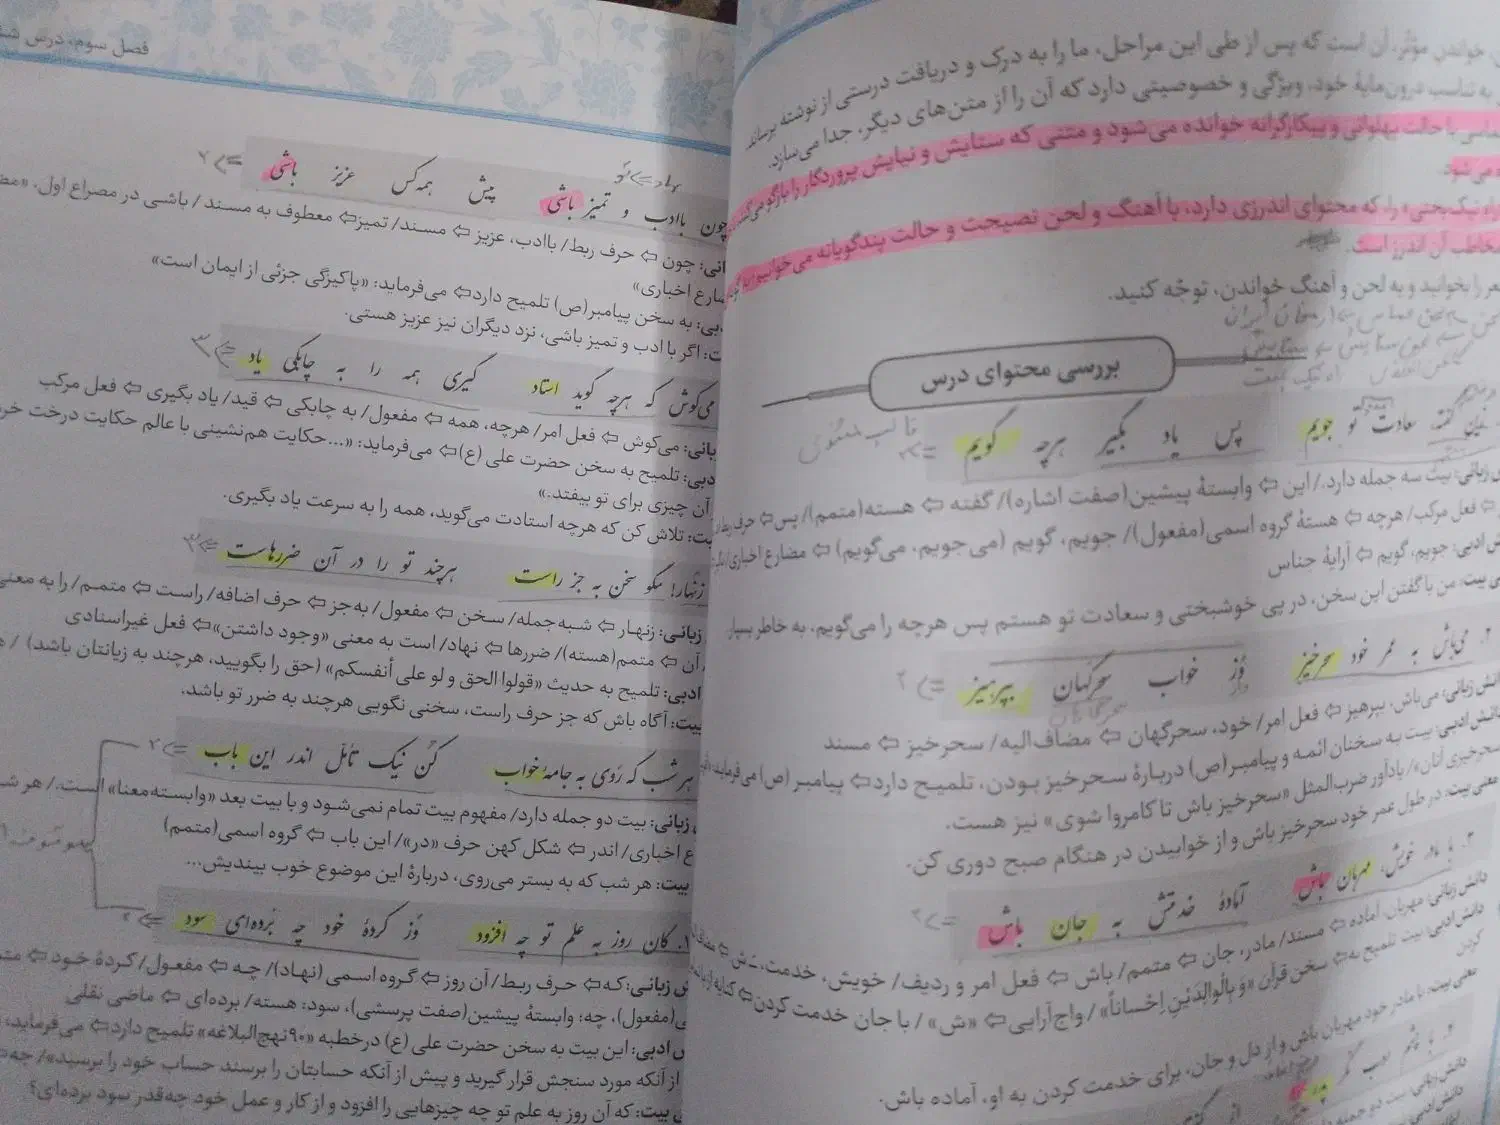 خواندن مؤثر، آن است که پس از طی این مراحل، ما را به درک و دریافت درستی از نوشته برساند.
به تناسب درون‌مایهٔ خود، ویژگی و خصوصیتی دارد که آن را از متن‌های دیگر، جدا می‌سازد.
با حالت پهلوانی و پیکارگرانه خوانده می‌شود و متنی که ستایش و نیایش پروردگار را بازگو می‌کند
می‌شود.
نیک‌بختی» را، که محتوای اندرزی دارد، با آهنگ و لحن نصیحت و حالت پندگویانه می‌خوانیم
مخاطب آن اندرز است.
را بخوانید و به لحن و آهنگ خواندن، توجّه کنید.
بررسی محتوای درس
زین گفته سعادت تو جویم پس یاد بگیر هرچه گویم
قالب مثنوی
زبانی: بیت سه جمله دارد./ این ⇦ وابستهٔ پیشین(صفت اشاره)/ گفته ⇦ هسته(متمم)/ پس⇦ حرف ربط/
⇦ فعل مرکب/ هرچه ⇦ هستهٔ گروه اسمی(مفعول)/ جویم، گویم (می‌جویم، می‌گویم) ⇦ مضارع اخباری/
ادبی: جویم، گویم ⇦ آرایهٔ جناس
بیت: من با گفتن این سخن، در پی خوشبختی و سعادت تو هستم پس هرچه را می‌گویم، به خاطر بسپار.
۲. می‌باش به عمر خود سحرخیز وُز خواب سحرگهان بپرهیز
دانش زبانی: می‌باش، بپرهیز ⇦ فعل امر/ خود، سحرگهان ⇦ مضاف‌الیه/ سحرخیز ⇦ مسند
دانش ادبی: بیت به سخنان ائمه و پیامبر(ص) دربارهٔ سحرخیز بودن، تلمیح دارد⇦ پیامبر (ص) می‌فرماید:
سحرخیزی آنان»/ یادآور ضرب‌المثل «سحرخیز باش تا کامروا شوی» نیز هست.
معنی بیت: در طول عمر خود سحرخیز باش و از خوابیدن در هنگام صبح دوری کن.
۳. با مادر خویش، مهربان باش آمادهٔ خدمتش به جان باش
دانش زبانی: مهربان، آماده ⇦ مسند/ مادر، جان ⇦ متمم/ باش ⇦ فعل امر و ردیف/ خویش، خدمت، ـش ⇦
دانش ادبی: بیت تلمیح به⇦ سخن قرآن «وَ بِالْوالِدَیْنِ اِحْساناً»/ واج‌آرایی⇦ «ش»/ با جان خدمت کردن⇦ کنایه از
کردن
معنی بیت: با مادر خود مهربان باش و از دل و جان، برای خدمت کردن به او، آماده باش.
۴. با چشم ادب نگر پدر را
دانش زبانی: بیت دو جمله
دانش ادبی:
فصل سوم، درس
چون باادب و تمیز باشی پیش همه‌کس عزیز باشی
چون ⇦ حرف ربط/ باادب، عزیز ⇦ مسند/ تمیز⇦ معطوف به مسند/ باشی در مصراع اول،
مضارع اخباری»
به سخن پیامبر(ص) تلمیح دارد⇦ می‌فرماید: «پاکیزگی جزئی از ایمان است»
اگر با ادب و تمیز باشی، نزد دیگران نیز عزیز هستی.
می‌کوش که هرچه گوید استاد گیری همه را به چابکی یاد
می‌کوش ⇦ فعل امر/ هرچه، همه ⇦ مفعول/ به چابکی ⇦ قید/ یاد بگیری ⇦ فعل مرکب
تلمیح به سخن حضرت علی (ع)⇦ می‌فرماید: «...حکایت هم‌نشینی با عالم حکایت درخت
آن چیزی برای تو بیفتد.»
تلاش کن که هرچه استادت می‌گوید، همه را به سرعت یاد بگیری.
زنهار! مگو سخن به جز راست هرچند تو را در آن ضررهاست
زبانی: زنهار ⇦ شبه‌جمله/ سخن ⇦ مفعول/ به‌جز ⇦ حرف اضافه/ راست ⇦ متمم/ را به معنی
آن ⇦ متمم(هسته)/ ضررها ⇦ نهاد/ است به معنی «وجود داشتن»⇦ فعل غیراسنادی
ادبی: تلمیح به حدیث «قولوا الحق و لو علی أنفسکم» (حق را بگویید، هرچند به زیانتان باشد)/
بیت: آگاه باش که جز حرف راست، سخنی نگویی هرچند به ضرر تو باشد.
هر شب که رَوی به جامهٔ خواب کُن نیک تأمّل اندر این باب
زبانی: بیت دو جمله دارد/ مفهوم بیت تمام نمی‌شود و با بیت بعد «وابسته‌معنا» است./ هر
اخباری/ اندر ⇦ شکل کهن حرف «در»/ این باب ⇦ گروه اسمی(متمم)
بیت: هر شب که به بستر می‌روی، دربارهٔ این موضوع خوب بیندیش...
کان روز به علم تو چه افزود وُز کردهٔ خود چه بُرده‌ای سود
زبانی: که⇦ حرف ربط/ آن روز ⇦ گروه اسمی (نهاد)/ چه ⇦ مفعول/ کردهٔ خود ⇦
(مفعول)، چه: وابستهٔ پیشین(صفت پرسشی)، سود: هسته/ برده‌ای ⇦ ماضی نقلی
ادبی: این بیت به سخن حضرت علی (ع) درخطبه «۹۰نهج‌البلاغه» تلمیح دارد⇦ می‌فرماید،
از آنکه مورد سنجش قرار گیرید و پیش از آنکه حسابتان را برسند حساب خود را برسید»/
بیت: که آن روز به علم تو چه چیزهایی را افزود و از کار و عمل خود چه‌قدر سود برده‌ای؟